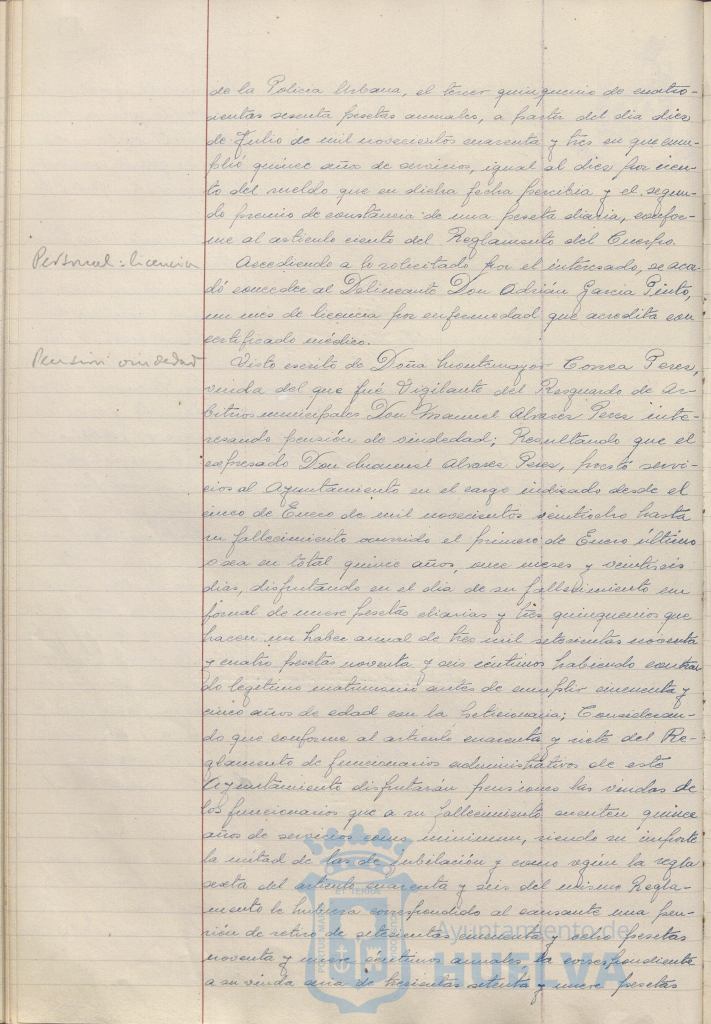 de la Policia Urbana, el tercer quinquenio de cuatro-
cientas sesenta pesetas anuales, a partir del dia diez
de Julio de mil novecientos cuarenta y tres en que cum-
plió quince años de servicios, igual al diez por cien-
to del sueldo que en dicha fecha percibia y el segun-
do premio de constancia de una peseta diaria, confor-
me al articulo ciento del Reglamento del Cuerpo.
Personal: licencia
Accediendo a lo solicitado por el interesado, se acor-
dó conceder al Delineante Don Adrián Garcia Pinto,
un mes de licencia por enfermedad que acredita con
certificado médico.
Pension viudedad
Visto escrito de Doña Montemayor Correa Perez,
viuda del que fué Vigilante del Resguardo de Ar-
bitrios municipales Don Manuel Alvarez Perez inte-
resando pensión de viudedad; Resultando que el
expresado Don Manuel Alvarez Perez, prestó servi-
cios al Ayuntamiento en el cargo indicado desde el
cinco de Enero de mil novecientos veintiocho hasta
su fallecimiento ocurrido el primero de Enero último
o sea en total quince años, once meses y veintiseis
dias, disfrutando en el dia de su fallecimiento un
jornal de nueve pesetas diarias y tres quinquenios que
hacen un haber anual de tres mil setecientas noventa
y cuatro pesetas noventa y seis céntimos habiendo contrai-
do legitimo matrimonio antes de cumplir cincuenta y
cinco años de edad con la peticionaria; Consideran-
do que conforme al articulo cuarenta y siete del Re-
glamento de funcionarios administrativos de este
Ayuntamiento disfrutarán pensiones las viudas de
los funcionarios que a su fallecimiento cuenten quince
años de servicios como minimum, siendo su importe
la mitad de las de jubilación y como segun la regla
sexta del articulo cuarenta y seis del mismo Regla-
mento le hubiera correspondido al causante una pen-
sión de retiro de setecientas cincuenta y ocho pesetas
noventa y nueve céntimos anuales, la correspondiente
a su viuda será de trescientas setenta y nueve pesetas
Ayuntamiento de
HUELVA